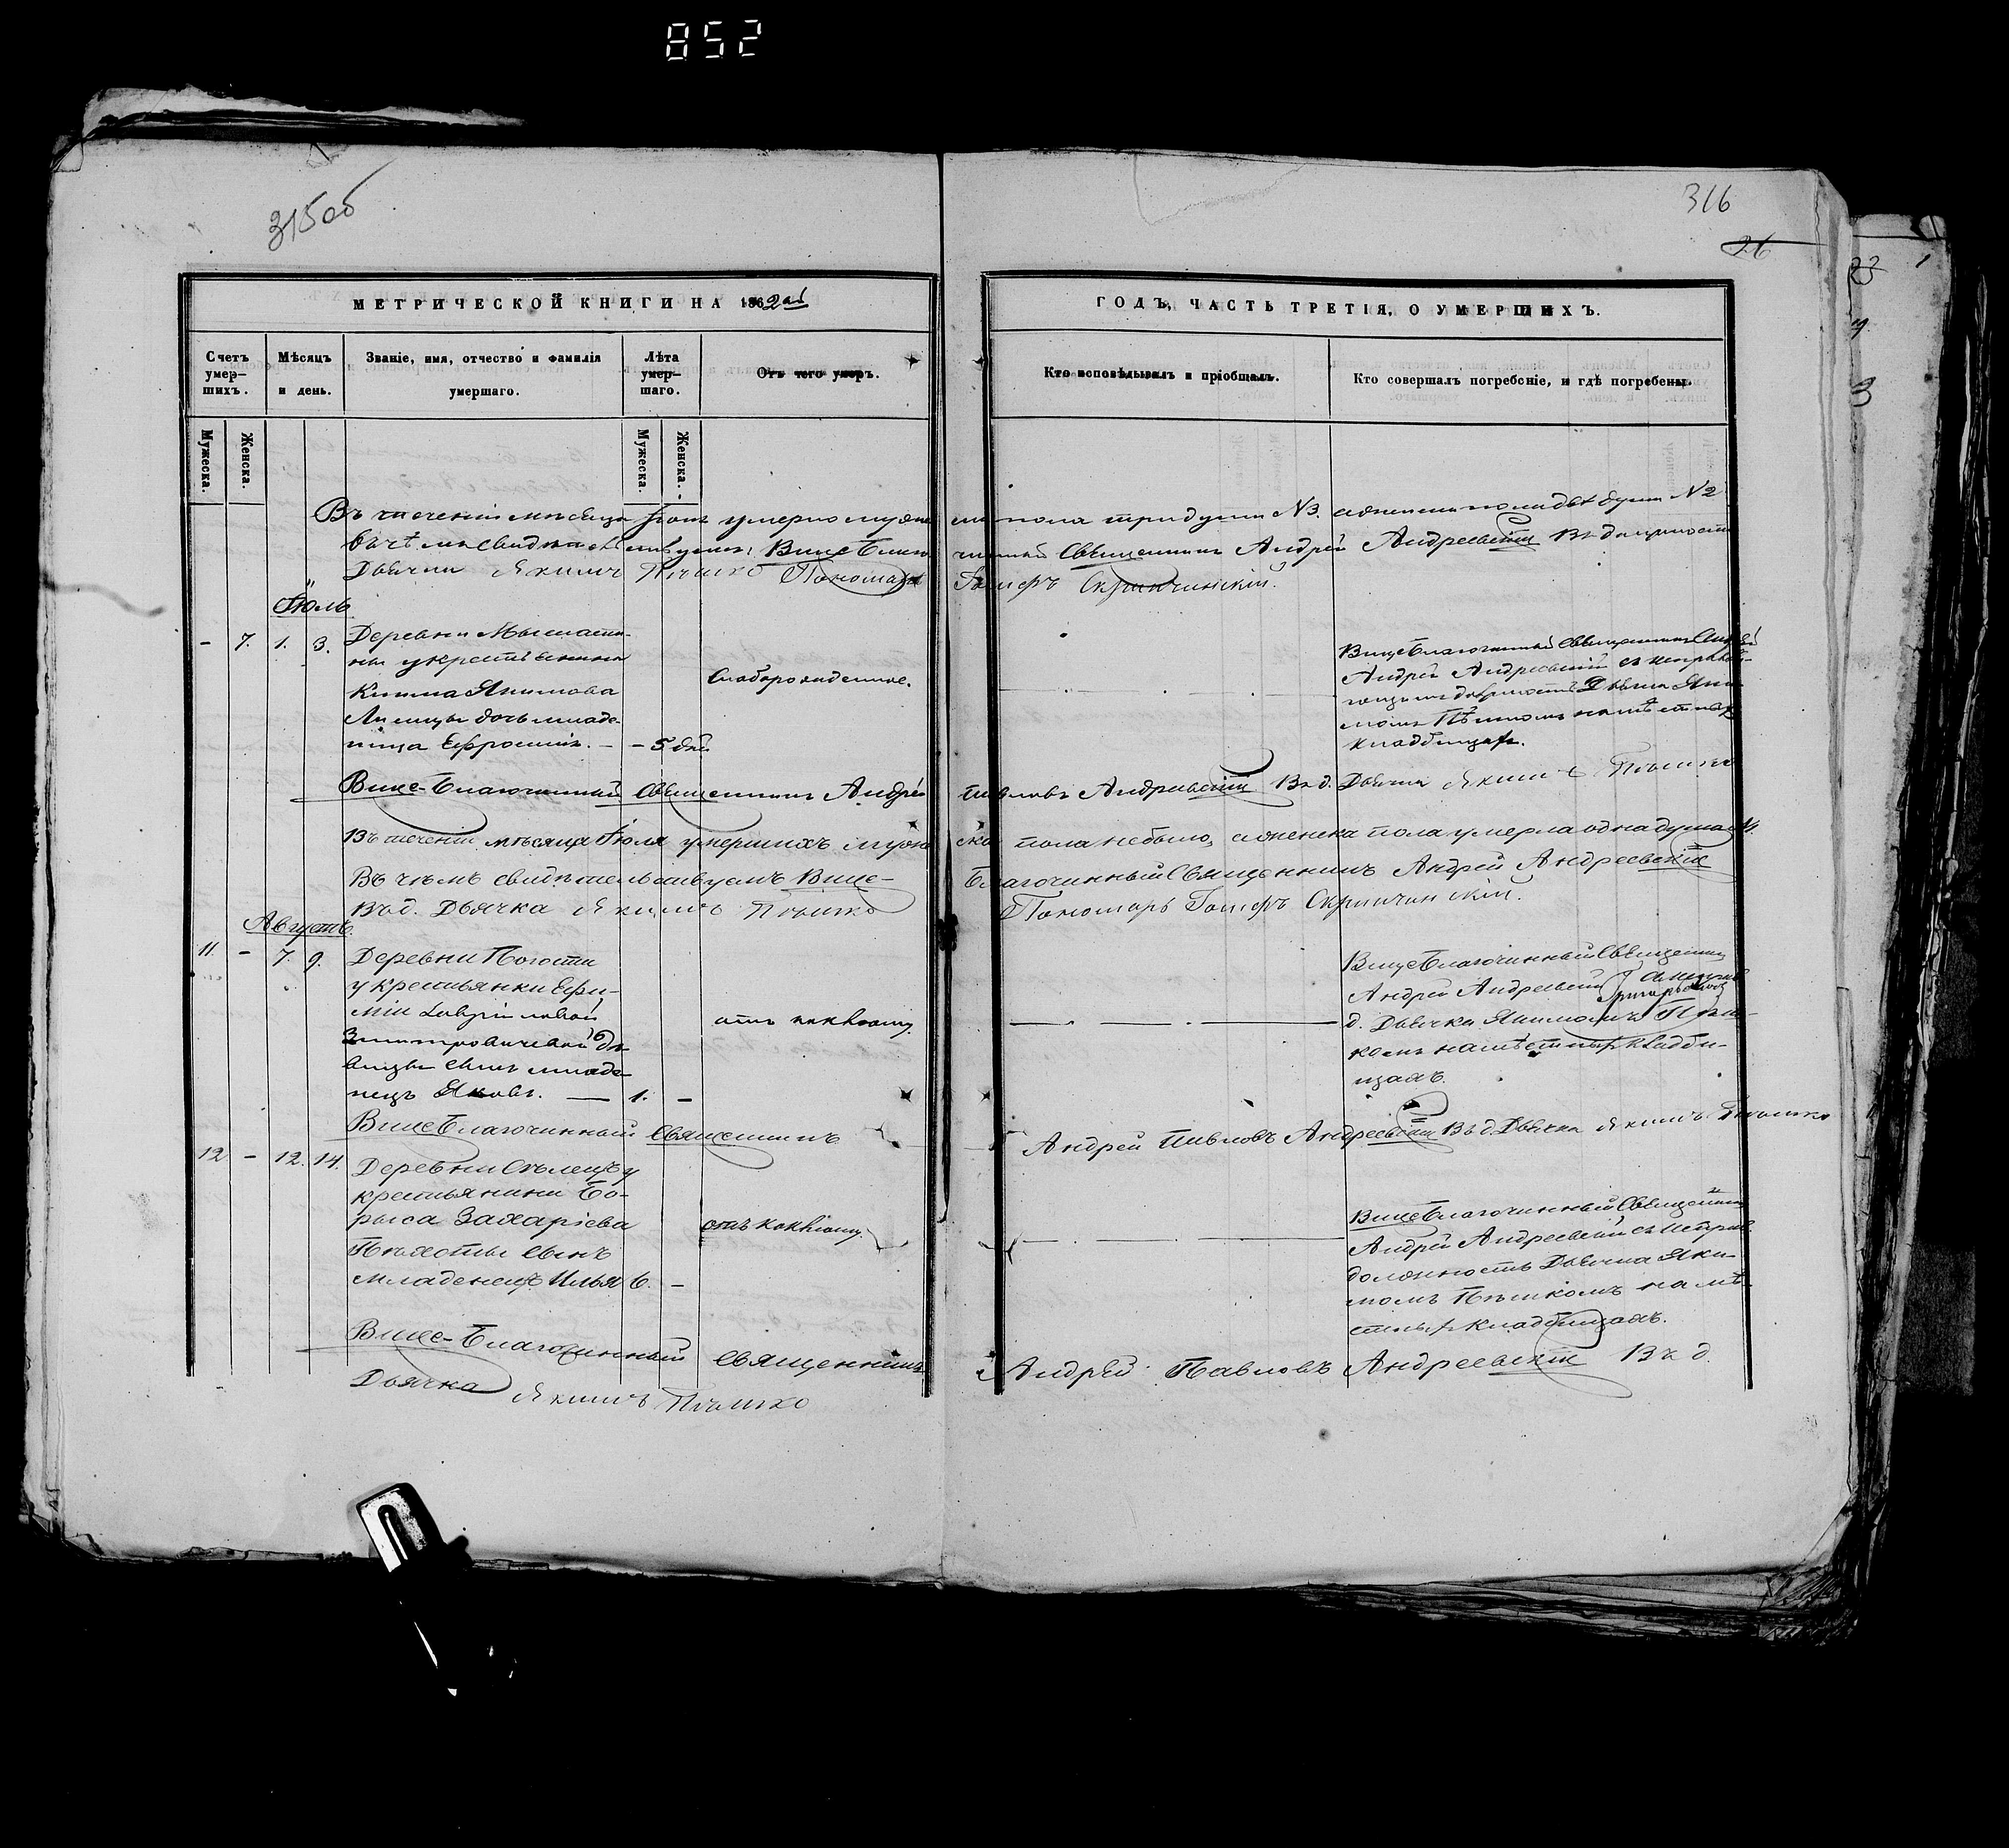 852
315об
316
26
МЕТРИЧЕСКОЙ КНИГИ НА 1862ой
ГОДЪ, ЧАСТЬ ТРЕТІЯ, О УМЕРШИХЪ.
Счетъ умер-шихъ.
Мѣсяцъ и день.
Званіе, имя, отчество и фамилія умершаго.
Лѣта умер-шаго.
Отъ чего умеръ.
Кто исповѣдывалъ и пріобщалъ.
Кто совершалъ погребеніе, и гдѣ погребены.
Мужеска.
Женска.
Мужеска.
Женска.
Въ теченіи мѣсяца умерло муже пола три души N3. женска пола двѣ души N2
въ чемъ свидѣтельствуемъ: Вице Благо чинный Священникъ Андрей Андреевскій Въ должности
Дьячка Якимъ Пѣшко Пономарь Скрипчинскій.
Іюль
- 7. 1. 3. Деревни
у крестьянина
Якимова
дочь младе-
ница Ефросинія. - - 5 дней
слаборожденное.
ВицеБлагочинный Священникъ
Андрей Андреевскій съ исправля-
ющимъ должность Дьячка Яки-
момъ Пѣшкомъ на мѣстныхъ
кладбищахъ.
Вице-Благочинный Священникъ Андрей Павловъ Андреевскій В. д. Дьячка Якимъ Пѣшко
Въ теченіи мѣсяца Іюля умершихъ муже ска пола небыло, а женска пола умерла одна душа N1.
Въ чемъ свидѣтельствуемъ Вице- Благочинный Священникъ Андрей Андреевскій
В. д. Дьячка Якимъ Пѣшко Пономарь Скрипчинскій.
Августъ.
11. - 7. 9. Деревни Погости
у крестьянки Ефи-
міи
дѣ-
вицы сынъ младе-
нецъ Яковъ. — 1. -
отъ коклюшу.
ВицеБлагочинный Священникъ
Андрей Андреевскій
д. Дьячка Якимомъ Пѣш-
комъ на мѣстныхъ кладби-
щахъ.
ВицеБлагочинный Священникъ Андрей Павловъ Андреевскій В. д. Дьячка Якимъ Пѣшко
12 - 12. 14. Деревни у
крестьянина Бо-
рыса Захаріева
сынъ
младенецъ Илья 6. -
отъ коклюшу.
ВицеБлагочинный Священникъ
Андрей Андреевскій съ исправ.
должность Дьячка Яки-
момъ Пѣшкомъ на мѣ-
стныхъ кладбищахъ.
Вице-Благочинный Священникъ Андрей Павловъ Андреевскій В. д.
Дьячка Якимъ Пѣшко